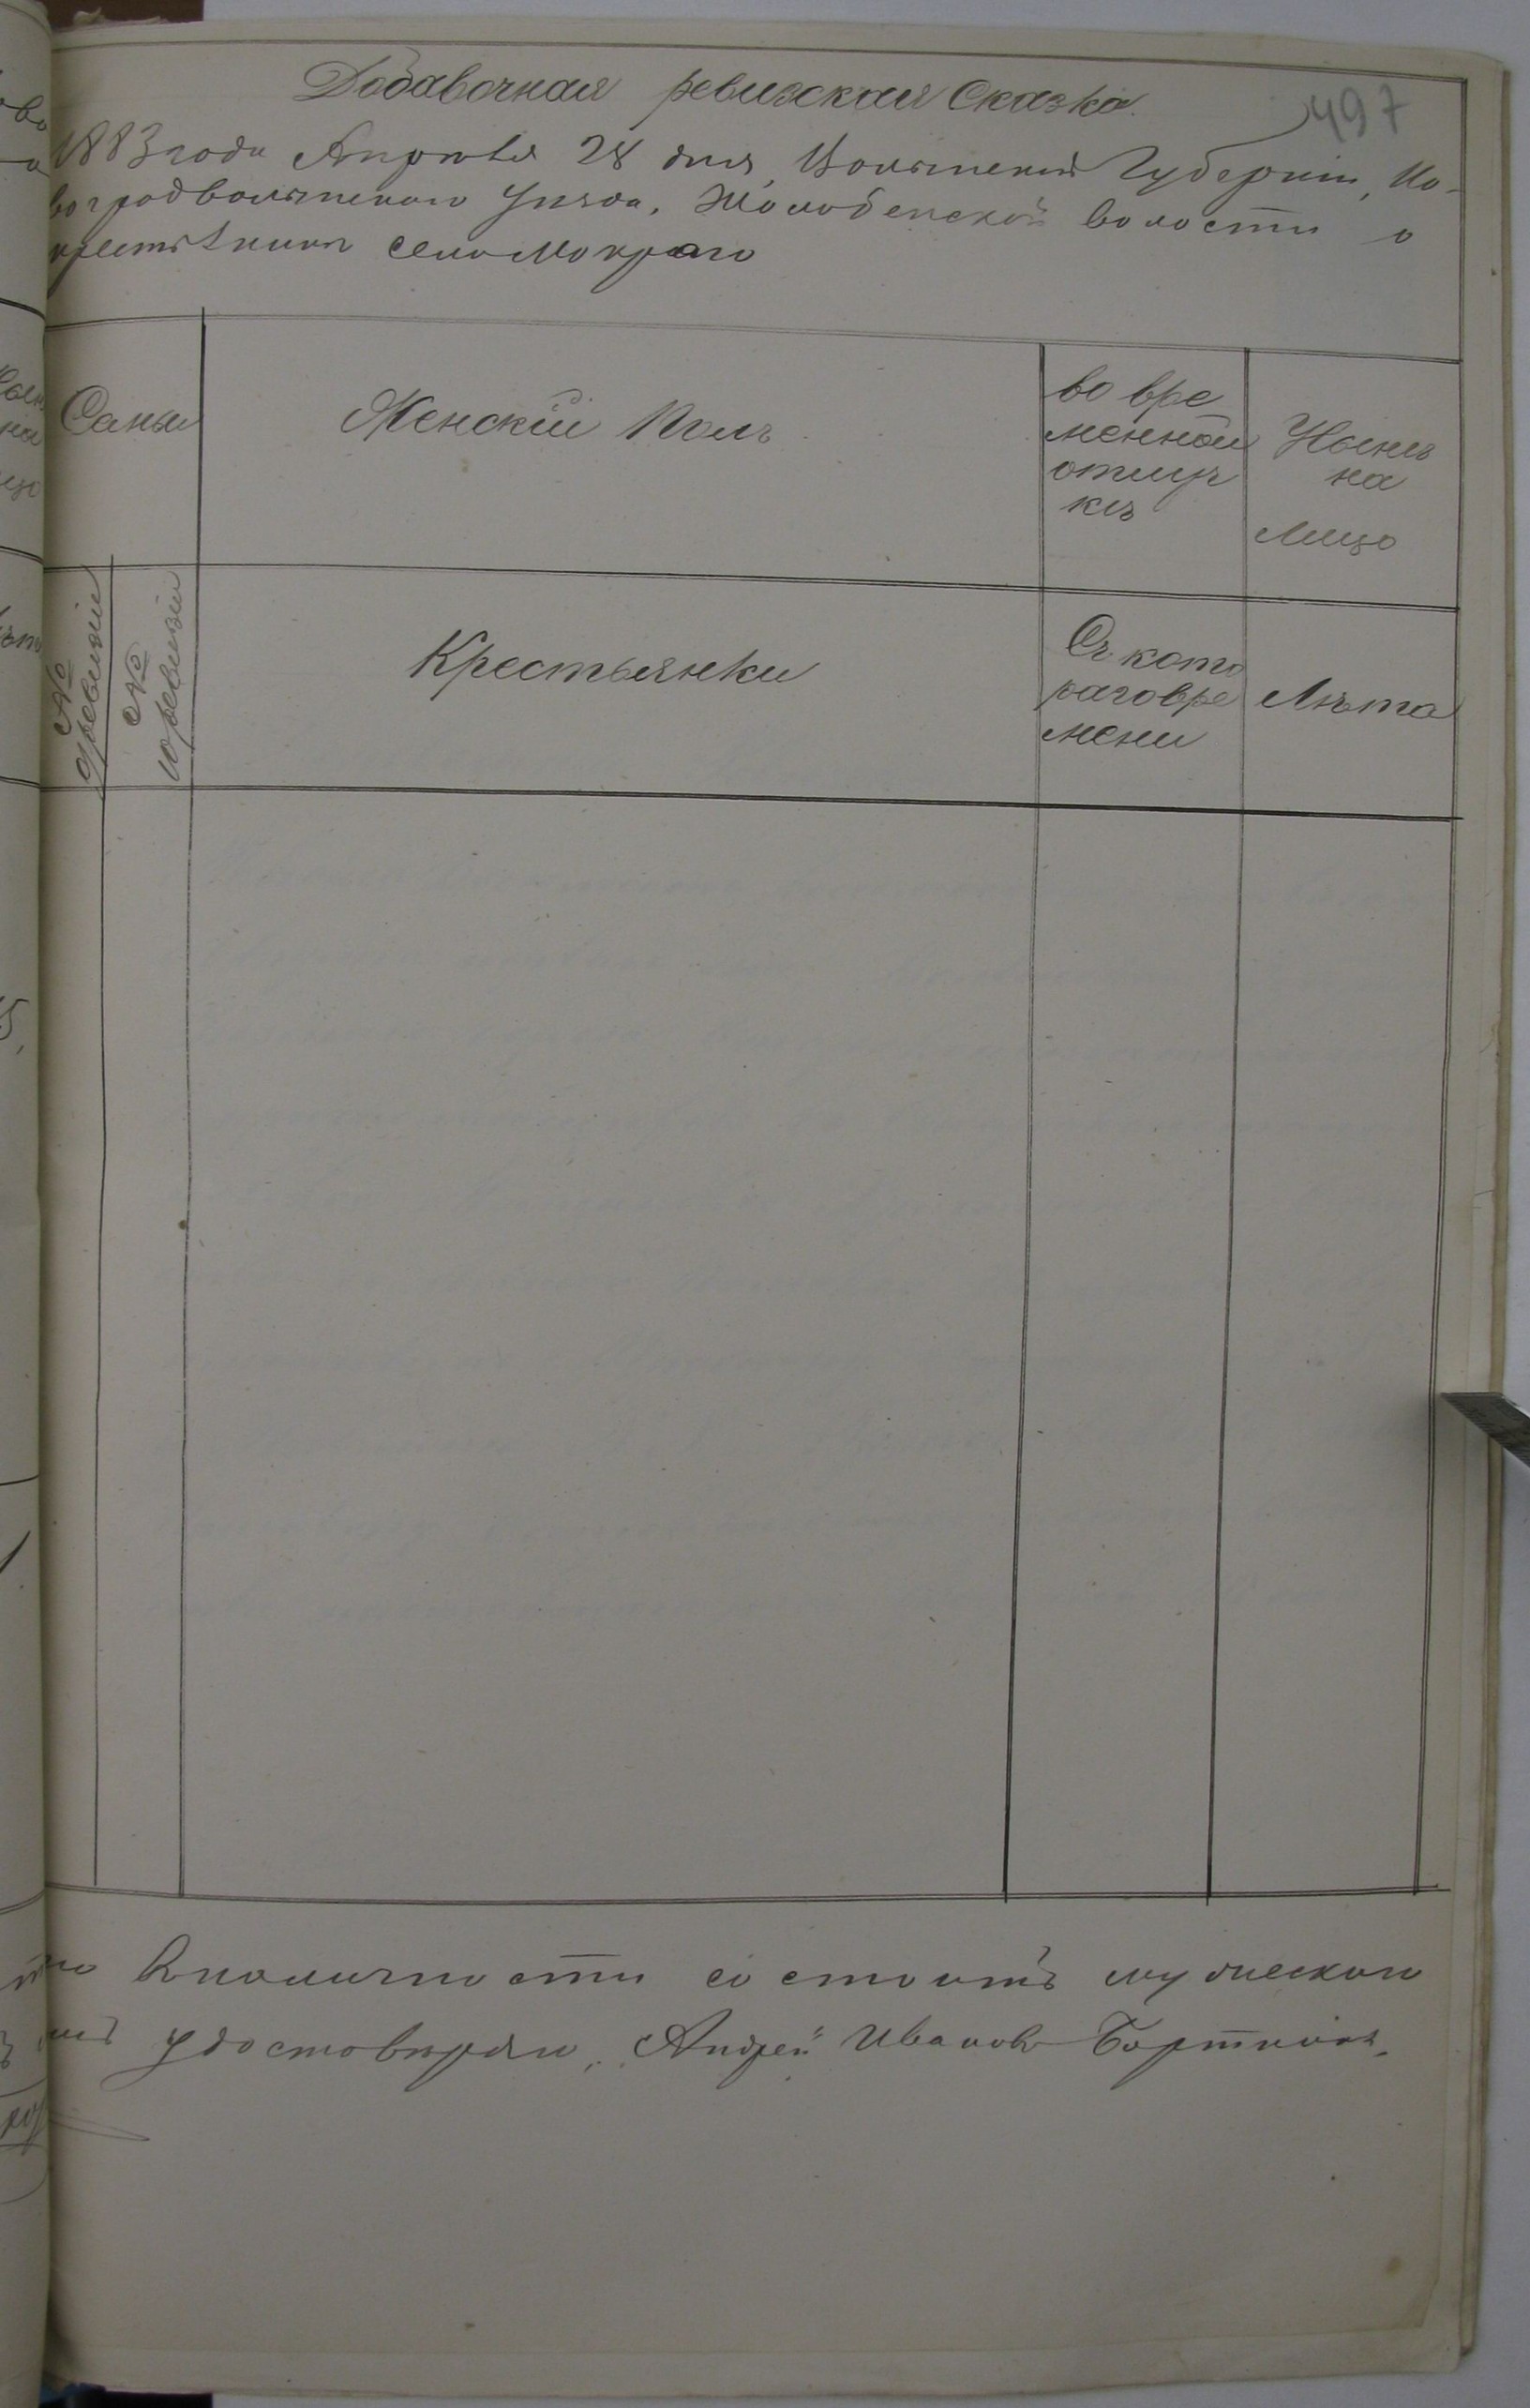 Добавочная ревизская Сказка.
497
1883 года Апреля 28 дня, Волынской Губернии, Но-
воградволынского Уезда, Жолобенской волости о
крестьянинѣ села Мокраго
Семьи
Женскій Полъ
во вре
менной
отлуч
кѣ
Нынѣ
на
Лицо
№ 9 ревизіи
№ 10 ревизіи
Крестьянки
Съ кото
раго вре
мени
Лѣта
вналичности состоитъ мужескаго
удостовѣряю, Андрей Ивановъ Бортникъ.